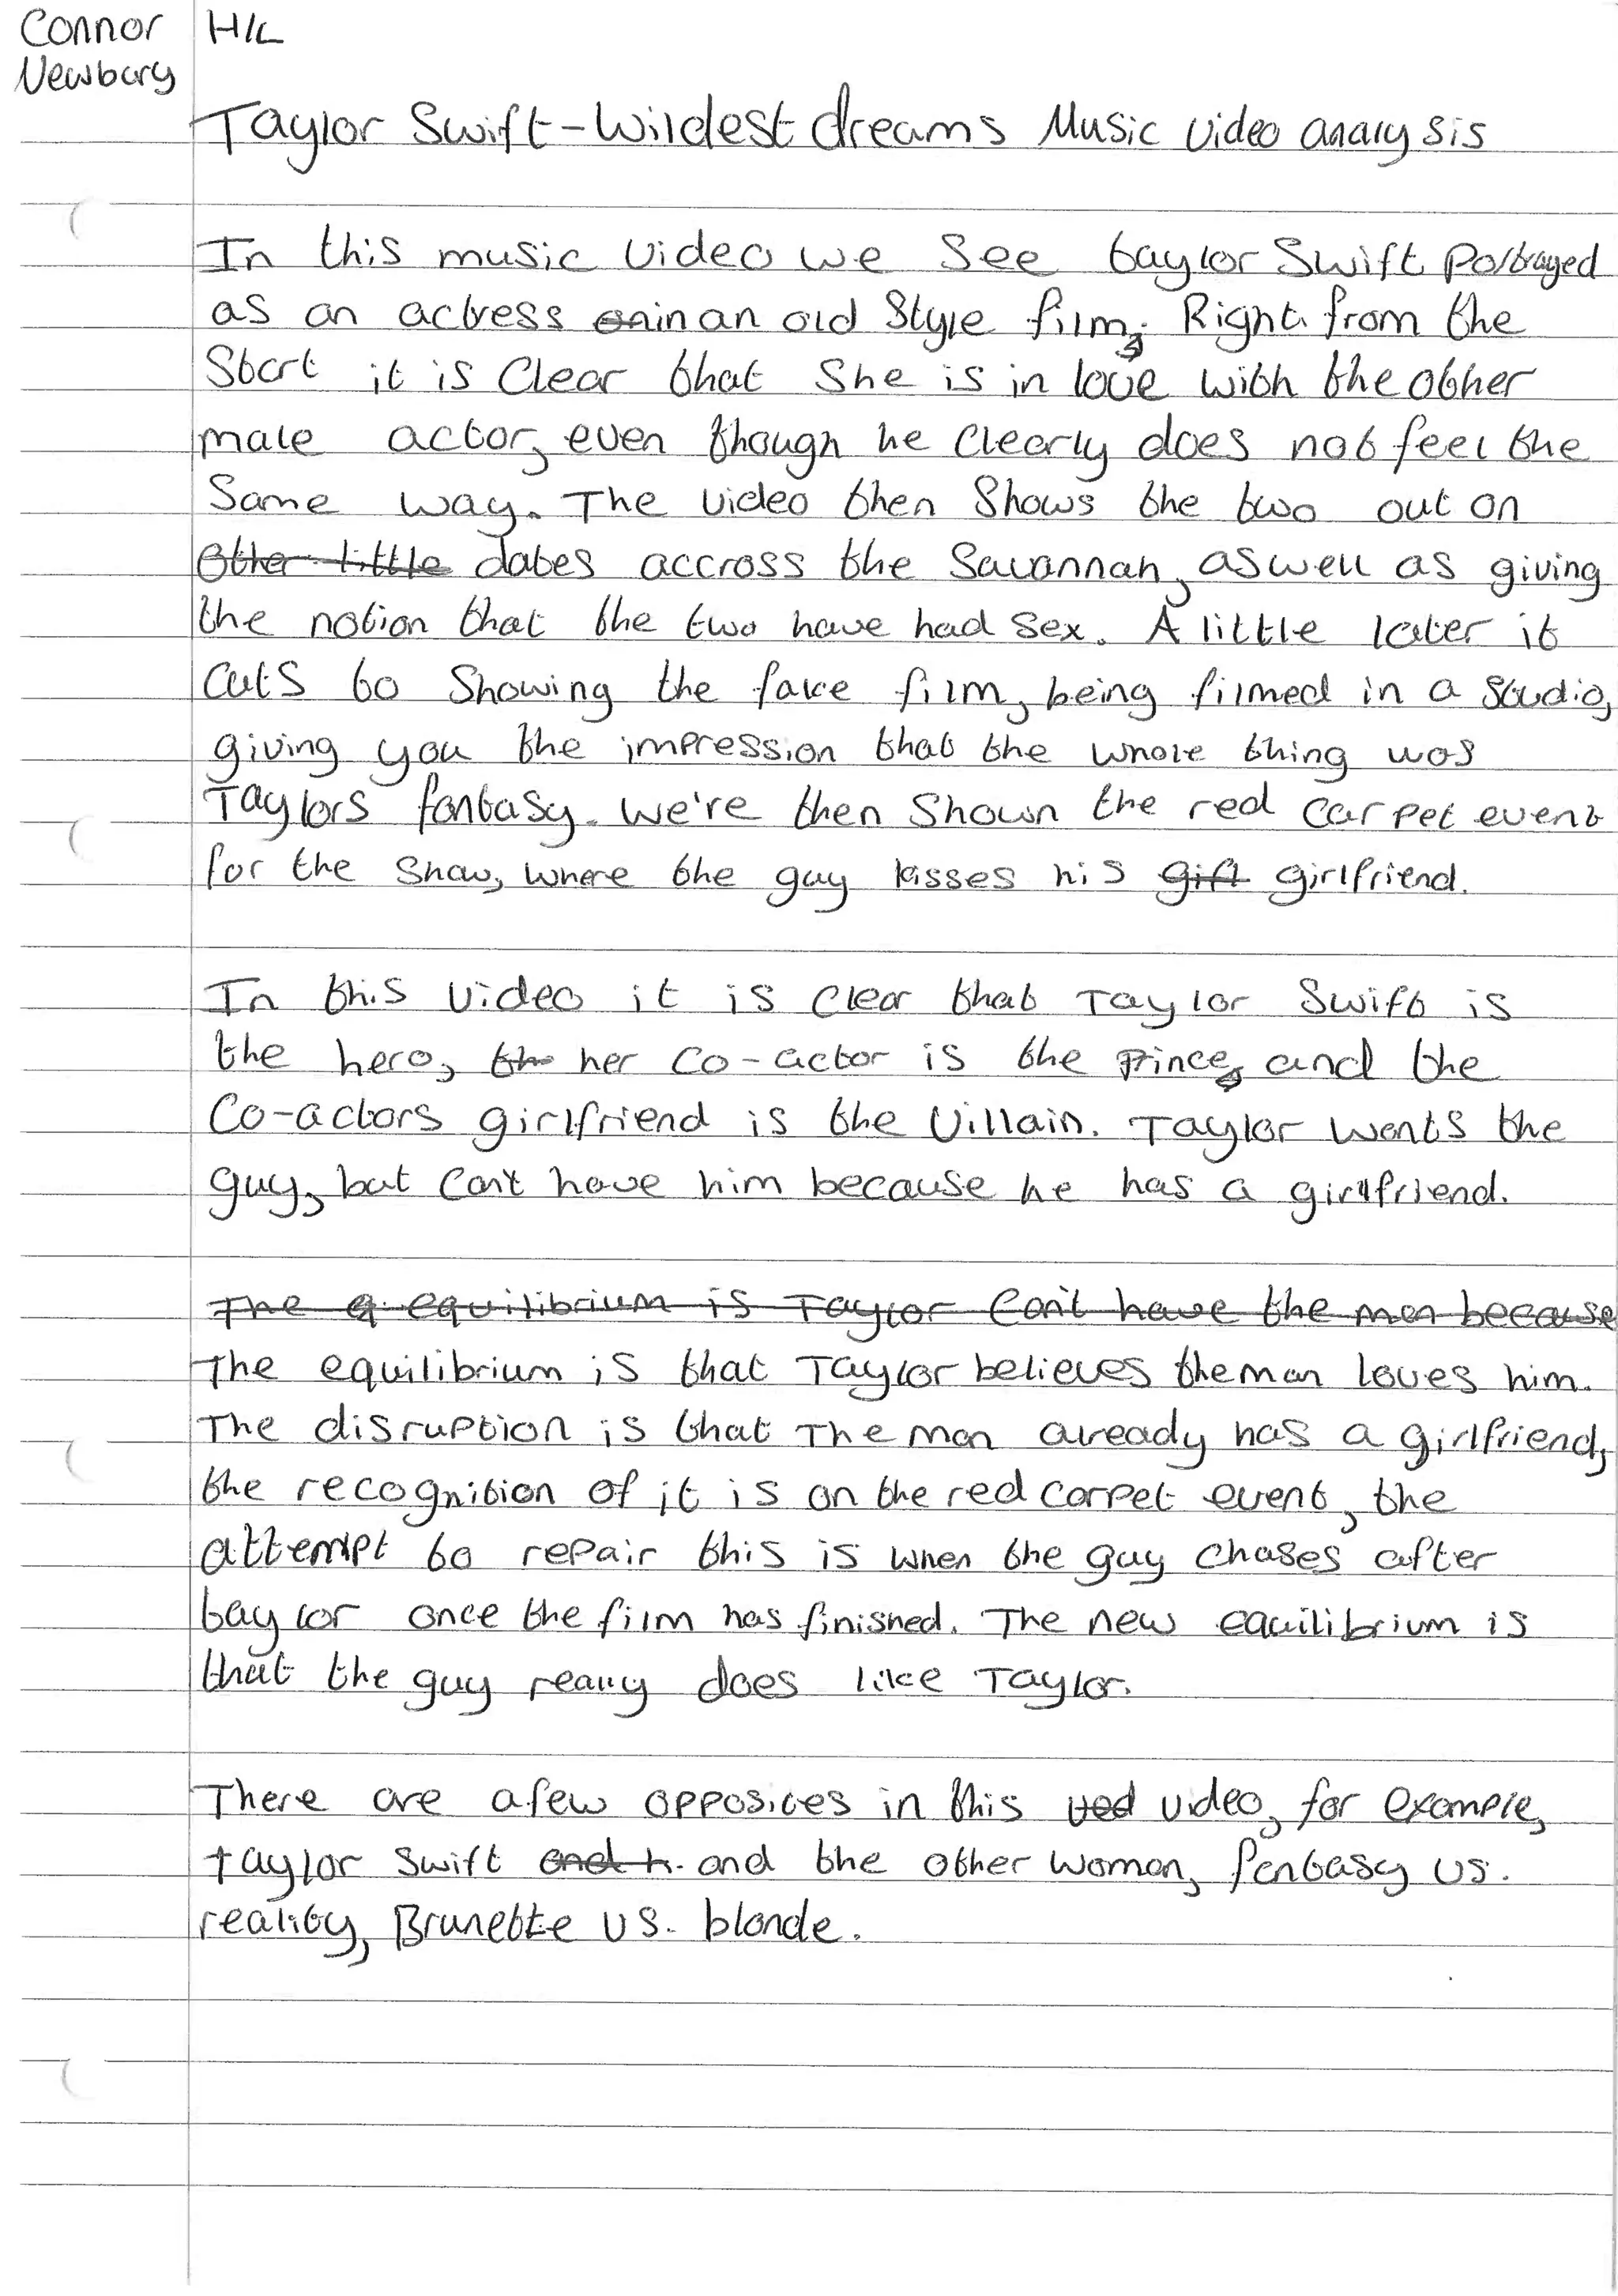 Connor H/L
Newbury
Taylor Swift - Wildest dreams Music Video analysis
In this music video we see taylor Swift Portrayed
as an actress in an old Style film. Right from the
Start it is Clear that She is in love with the other
male actor, even though he Clearly does not feel the
Same way. The video then Shows the two out on
other little dates accross the Savannah, aswell as giving
the notion that the two have had sex. A little later it
Cuts to Showing the fake film, being filmed in a Studio,
giving you the impression that the whole thing was
Taylors fantasy. We're then Shown the red carpet event
for the Show, where the guy kisses his gift girlfriend.
In this video it is Clear that Taylor Swift is
the hero, th her Co-actor is the Prince, and the
Co-actors girlfriend is the Villain. Taylor wants the
guy, but Can't have him because he has a girlfriend.
The q equilibrium is Taylor Can't have the man because
The equilibrium is that Taylor believes the man loves him.
The disruption is that The man already has a girlfriend,
the recognition of it is on the red carpet event, the
attempt to repair this is when the guy Chases after
taylor once the film has finished. The new equilibrium is
that the guy really does like Taylor.
There are a few opposites in this ved video, for example,
taylor Swift and h. and the other woman, fantasy vs.
reality, Brunette vs. blonde.